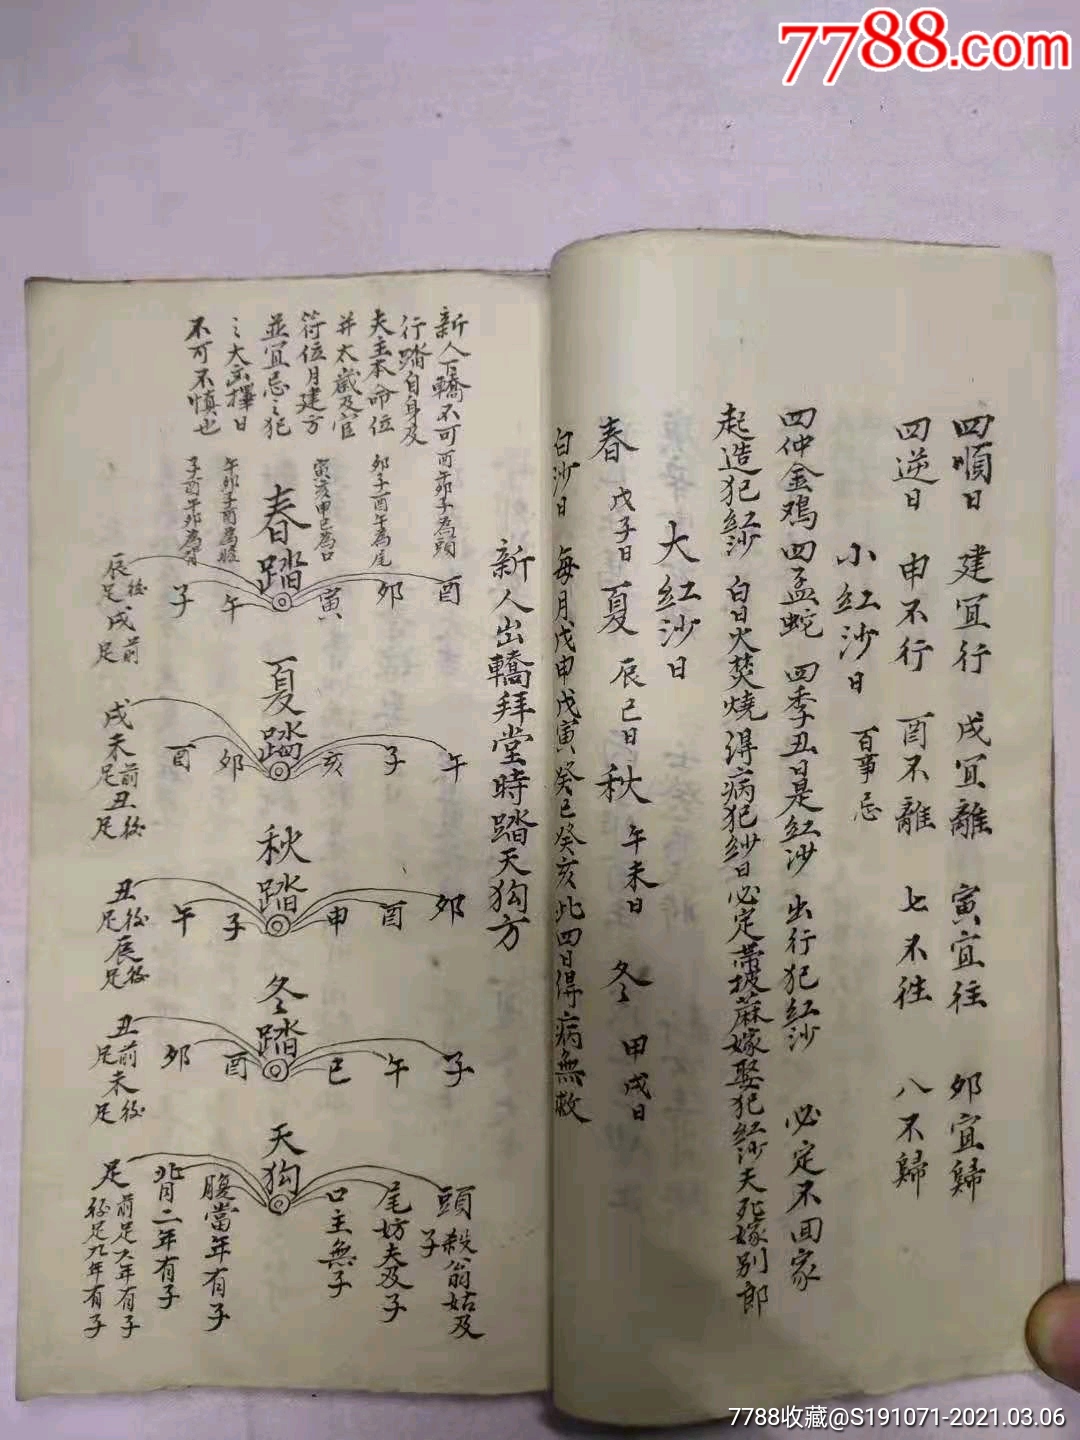 7788.com
四順日 建宜行 成宜離 寅宜往 卯宜歸
四逆日 申不行 酉不離 七不往 八不歸
小紅沙日 百事忌
四仲金鸡四孟蛇 四季丑日是紅沙 出行犯紅沙 必定不回家
起造犯紅沙 白日火焚燒 得病犯紗日必定帶披蔴嫁娶犯紅沙夫死嫁別郎
大紅沙日
春 戊子日 夏 辰巳日 秋 午未日 冬 甲戌日
白沙日 每月戊申戊寅癸巳癸亥此四日得病無救
新人出轎拜堂時踏天狗方
新人下轎不可
行踏自身及
夫主本命位
并太歲及官
符位月建方
並宜忌之犯
之大凶擇日
不可不慎也
酉午卯子為頭
卯子酉午為尾
寅亥申巳為口
午卯子酉為腹
子酉午卯為背
春踏
酉 卯 寅 午 子
辰後足戌前足
夏踏
午 子 亥 卯 酉
戌前足未丑後足
秋踏
卯 酉 申 子 午
丑後足辰後足
冬踏
子 午 巳 酉 卯
丑前足未後足
天狗
頭殺翁姑及子
尾妨夫及子
口主無子
腹當年有子
背二年有子
足前足六年有子
後足九年有子
7788收藏@S191071-2021.03.06